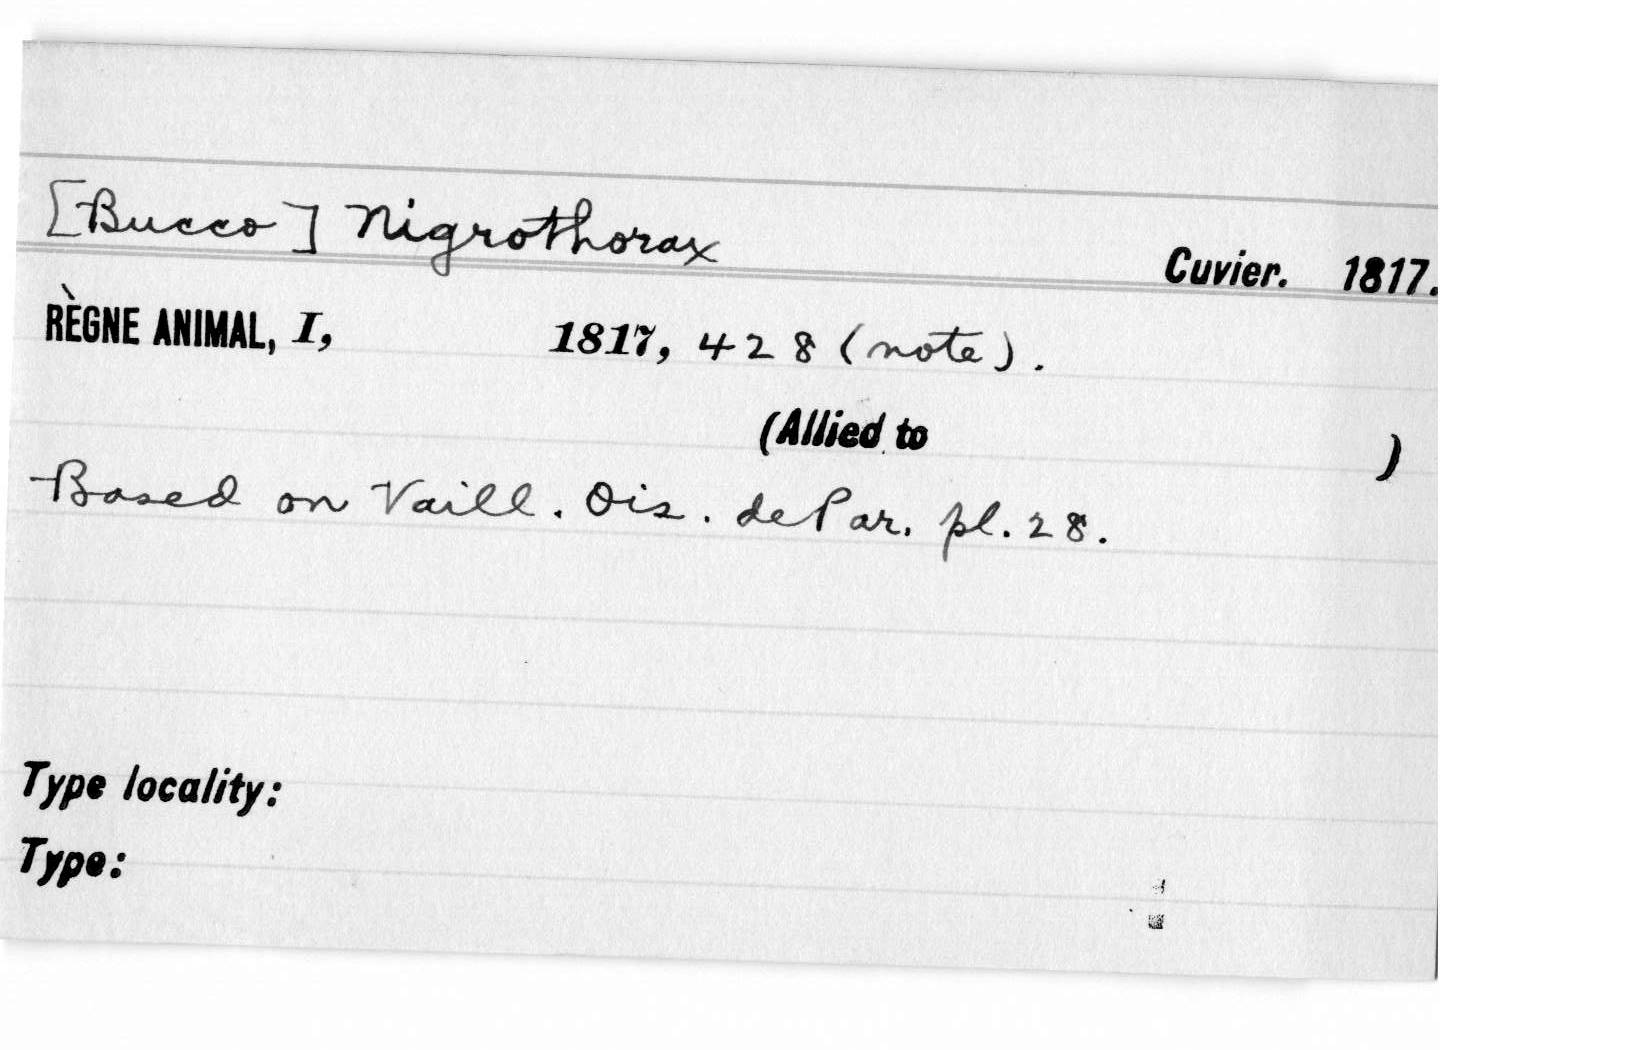 [Bucco] Nigrothorax
Cuvier. 1817.
RÈGNE ANIMAL, I, 1817, 428 (note).
(Allied to )
Based on Vaill. Ois. de Par. pl. 28.
Type locality:
Type: